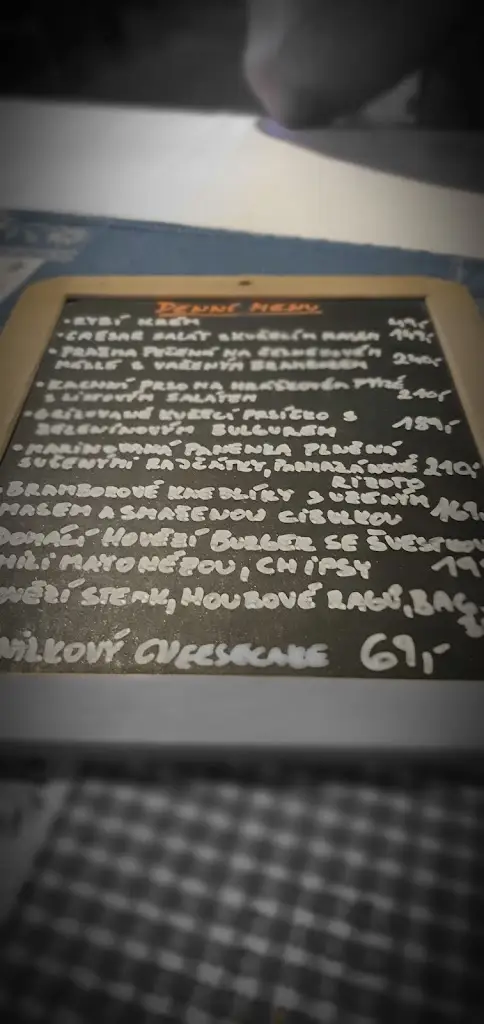 DENNÍ MENU
• RYBÍ KRÉM 49,-
SALÁT S KUŘECÍM MASEM 149,-
• PRAŽMA PEČENÁ NA
MÁSLE S VAŘENÝM BRAMBOREM 240,-
• KACHNÍ PRSO NA HRÁŠKOVÉM PYRÉ
S LISTOVÝM SALÁTEM 210,-
• GRILOVANÉ KUŘECÍ PRSÍČKO S
ZELENINOVÝM BULGUREM 189,-
• MARINOVANÁ PANENKA PLNĚNÁ
SUŠENÝMI RAJČÁTKY, PARMAZÁNOVÉ 210,-
RIZOTO
• BRAMBOROVÉ KNEDLÍKY S UZENÝM
MASEM A SMAŽENOU CIBULKOU 169,-
DOMÁCÍ HOVĚZÍ BURGER SE
MAYONÉZOU, CHIPSY 19
STEAK, HOUBOVÉ RAGÚ,
CHEESECAKE 69,-